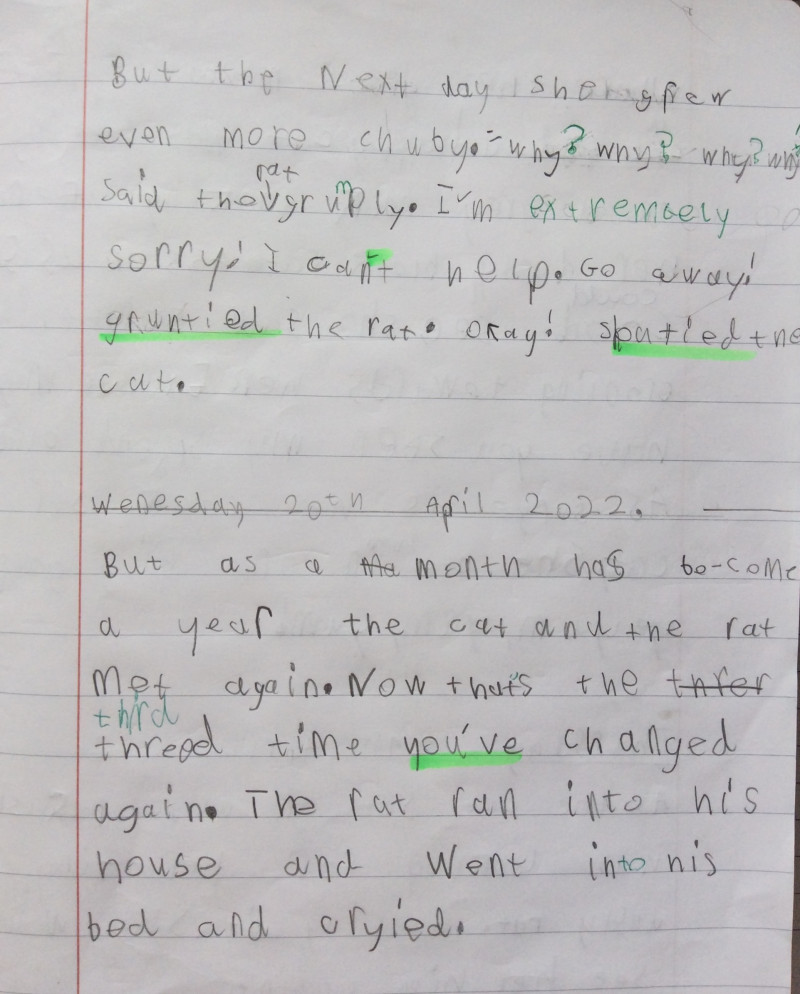 But the Next day she grew
even more chuby. why? why? why? why
rat
said the grumply. I'm extremeely
sorry! I can't help. Go away!
gruntied the rat. okay! spatled the
cat.
Wenesday 20th April 2022.
But as a month has be-come
a year the cat and the rat
Met again. Now that's the threr
third
thread time you've changed
again. The rat ran into his
house and went into his
bed and cryied.